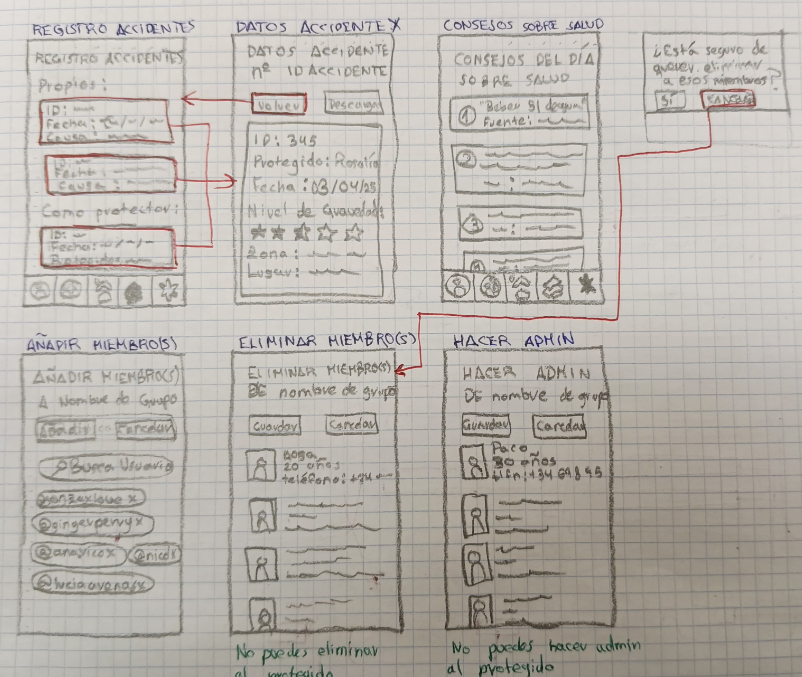 REGISTRO ACCIDENTES
REGISTRO ACCIDENTES
Propios:
ID:
Fecha:
Causa:
ID:
Fecha:
Causa:
Como protector:
ID:
Fecha:
DATOS ACCIDENTE X
DATOS ACCIDENTE
nº ID ACCIDENTE
Volver
Descargar
ID: 345
Protegido: Rosalía
Fecha: 03/04/25
Nivel de Gravedad:
Zona:
Lugar:
CONSEJOS SOBRE SALUD
CONSEJOS DEL DÍA
SOBRE SALUD
1 "Beber
Fuente:
2
3
4
¿Está seguro de
querer eliminar
a esos miembros?
SÍ
CANCELAR
AÑADIR MIEMBRO(S)
AÑADIR MIEMBRO(S)
A Nombre de Grupo
Añadir
Cancelar
Busca Usuario
@gingerperry x
@anayico x
@nico x
@luciaarenas x
ELIMINAR MIEMBRO(S)
ELIMINAR MIEMBRO(S)
DE nombre de grupo
Guardar
Cancelar
20 años
teléfono: +34
No puedes eliminar
al protegido
HACER ADMIN
HACER ADMIN
DE nombre de grupo
Guardar
Cancelar
Paco
30 años
tlfn: +34 69845
No puedes hacer admin
al protegido